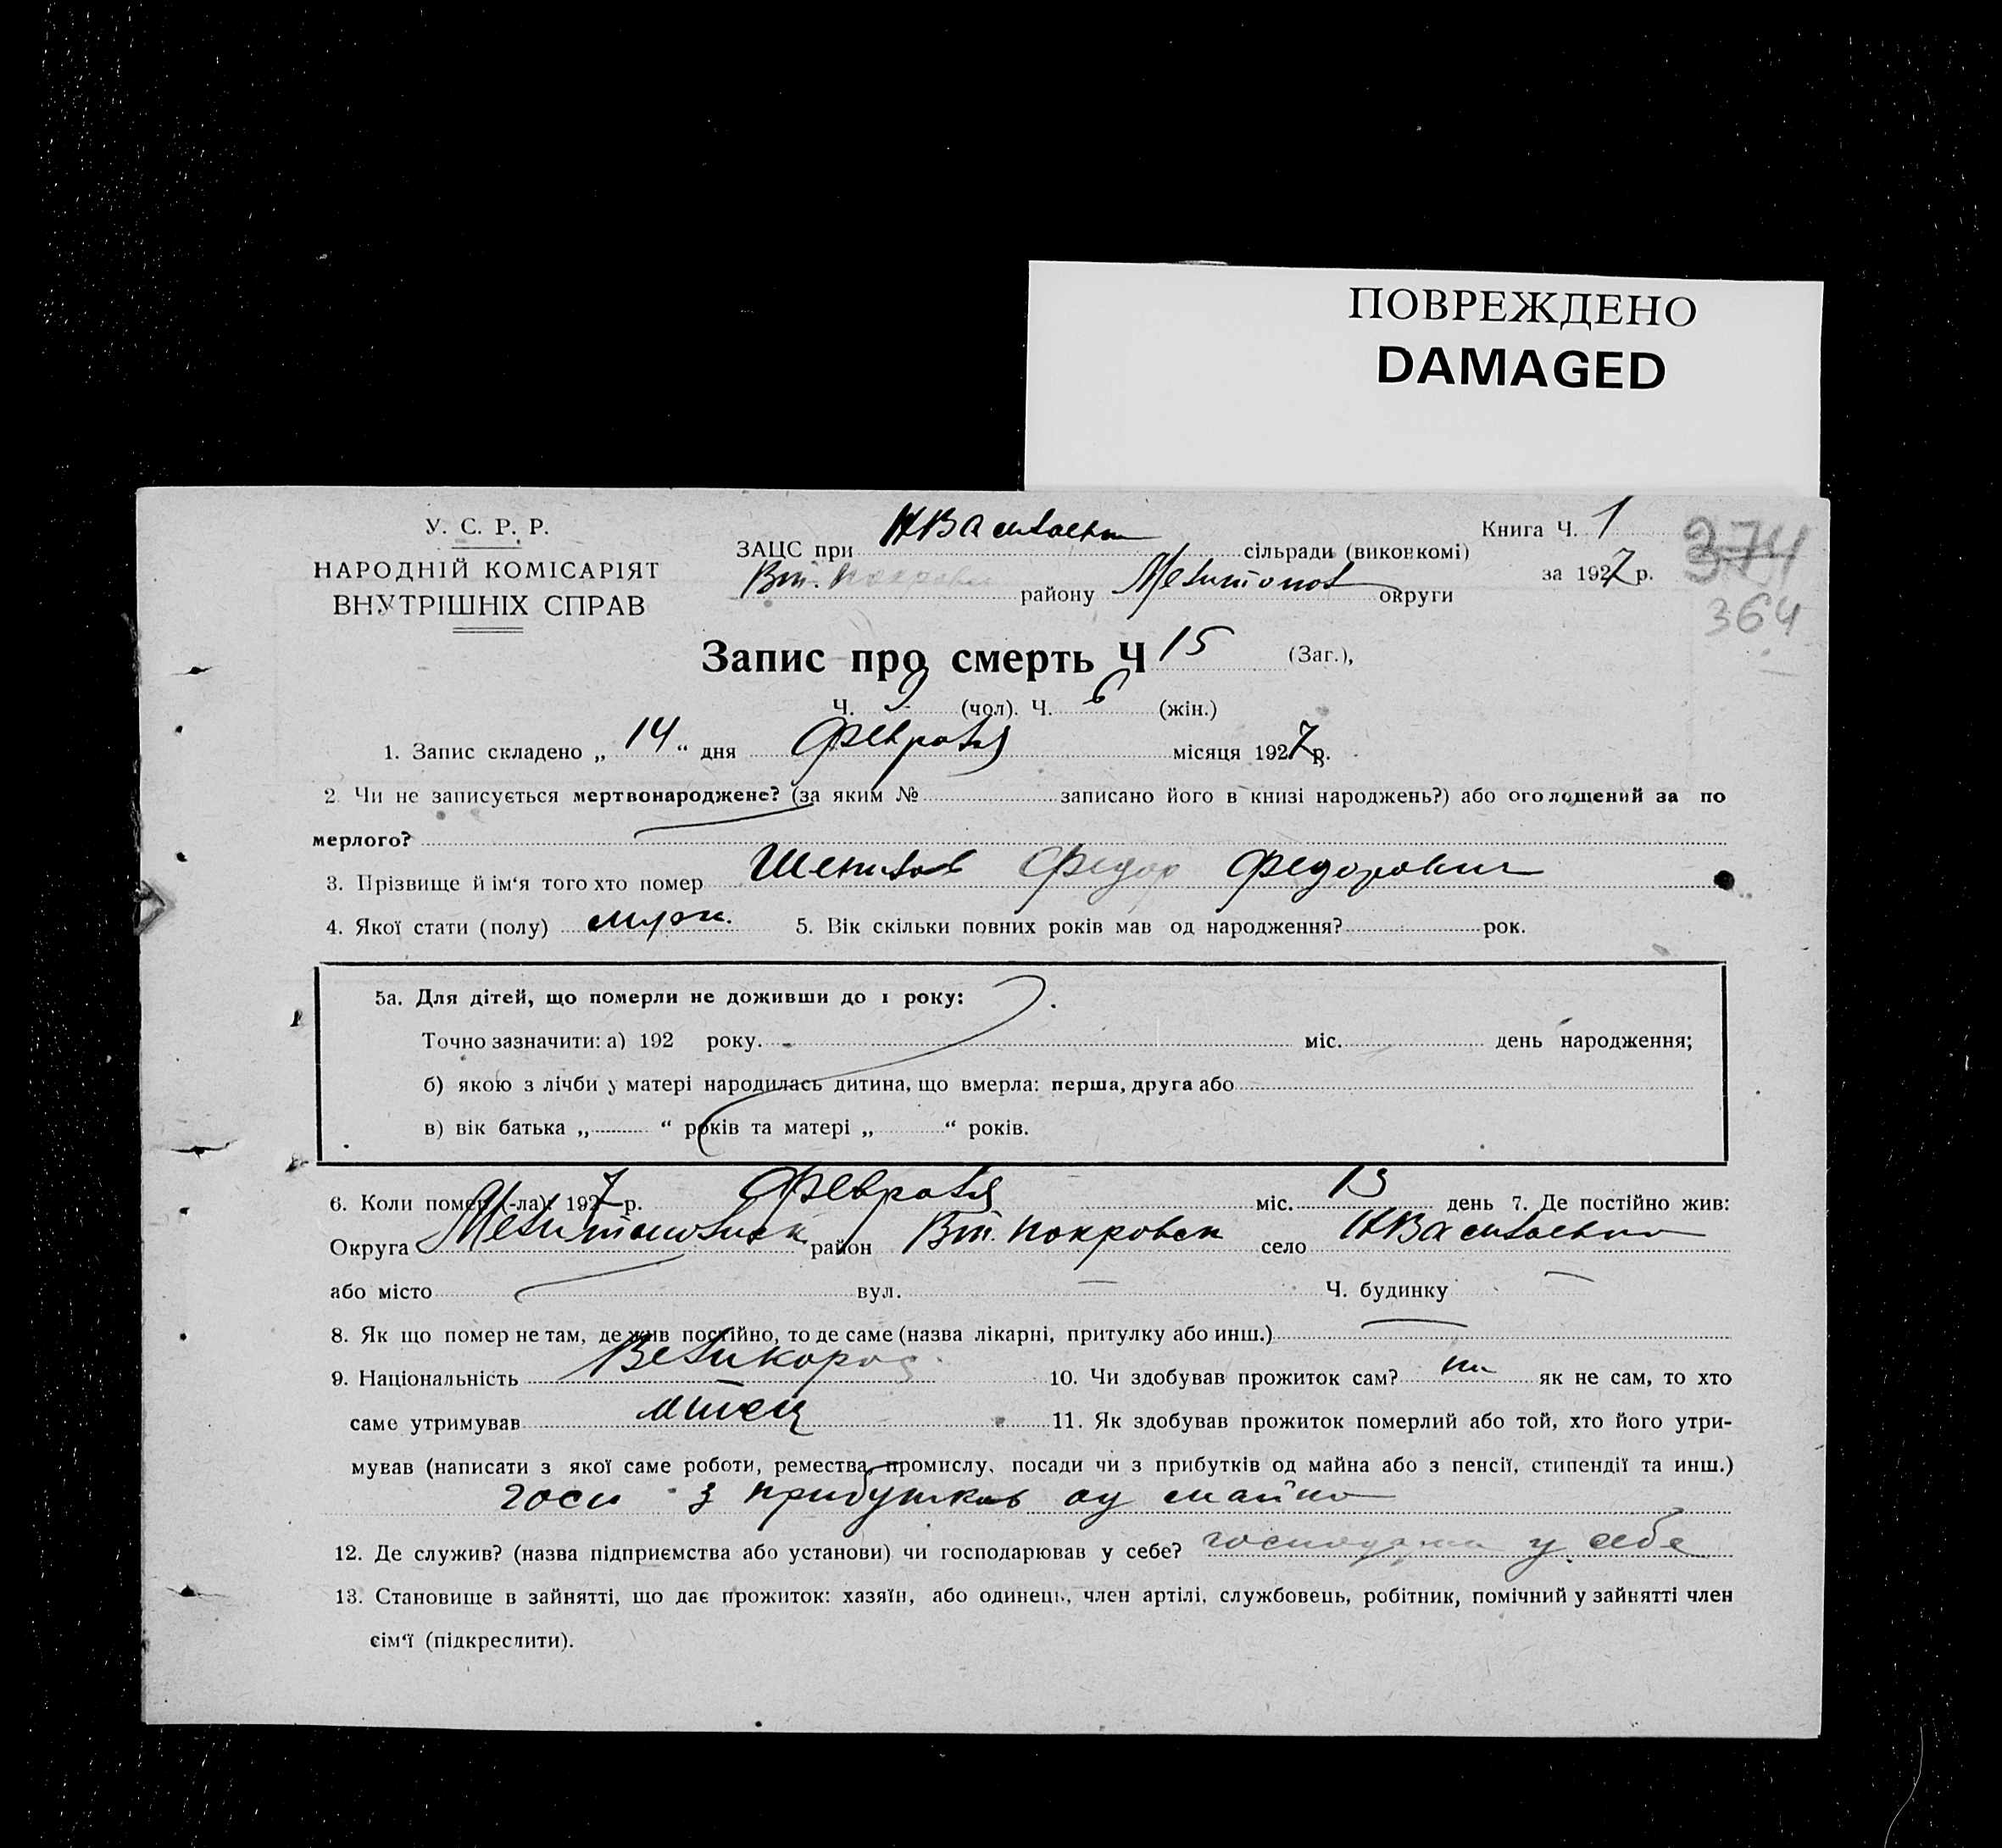 ПОВРЕЖДЕНО
DAMAGED
У. С. Р. Р.
НАРОДНІЙ КОМІСАРІЯТ
ВНУТРІШНІХ СПРАВ
ЗАЦС при НВасильевка сільради (виконкомі)
Вт. Покровск району Мелитопол округи
Книга Ч. 1
за 1927 р.
374
364
Запис про смерть Ч 15 (Заг.),
Ч. 9 (чол). Ч. 6 (жін.)
1. Запис складено „ 14 “ дня Февраля місяця 1927 р.
2. Чи не записується мертвонароджене? (за яким № записано його в книзі народжень?) або оголошений за по
мерлого?
3. Прізвище й ім‘я того хто помер Шепилов Федор Федорович
4. Якої стати (полу) муж. 5. Вік скільки повних років мав од народження? рок.
5а. Для дітей, що померли не доживши до 1 року:
Точно зазначити: а) 192 року. міс. день народження;
б) якою з лічби у матері народилась дитина, що вмерла: перша, друга або
в) вік батька „ “ років та матері „ “ років.
6. Коли помер (-ла): 1927 р. Февраля міс. 13 день 7. Де постійно жив:
Округа Мелитопольск район Вт. Покровск село НВасильевка
або місто вул. Ч. будинку
8. Як що помер не там, де жив постійно, то де саме (назва лікарні, притулку або инш.)
9. Національність Великорос 10. Чи здобував прожиток сам? ни як не сам, то хто
саме утримував отец 11. Як здобував прожиток померлий або той, хто його утри-
мував (написати з якої саме роботи, ремества, промислу, посади чи з прибутків од майна або з пенсії, стипендії та инш.)
з прибутков од майно
12. Де служив? (назва підприємства або установи) чи господарював у себе? у себе
13. Становище в зайнятті, що дає прожиток: хазяїн, або одинець, член артілі, службовець, робітник, помічний у зайнятті член
сім‘ї (підкреслити).